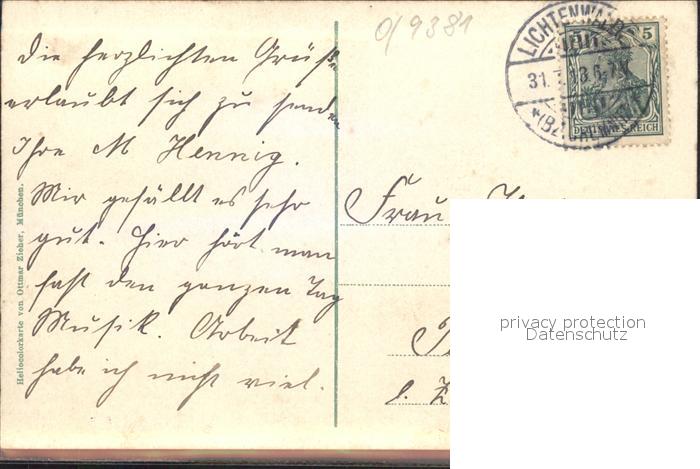 O/9381
LICHTENWALDE
5 5
31.
DEUTSCHES REICH
Die herzlichten Grüße
erlaubt sich zu senden
Ihre M Hennig.
Mir gefällt es sehr
gut. Hier hört man
fast den ganzen Tag
Musik. Arbeit
habe ich nicht viel.
Heliocolorkarte von Ottmar Zieher, München.
Frau
privacy protection
Datenschutz